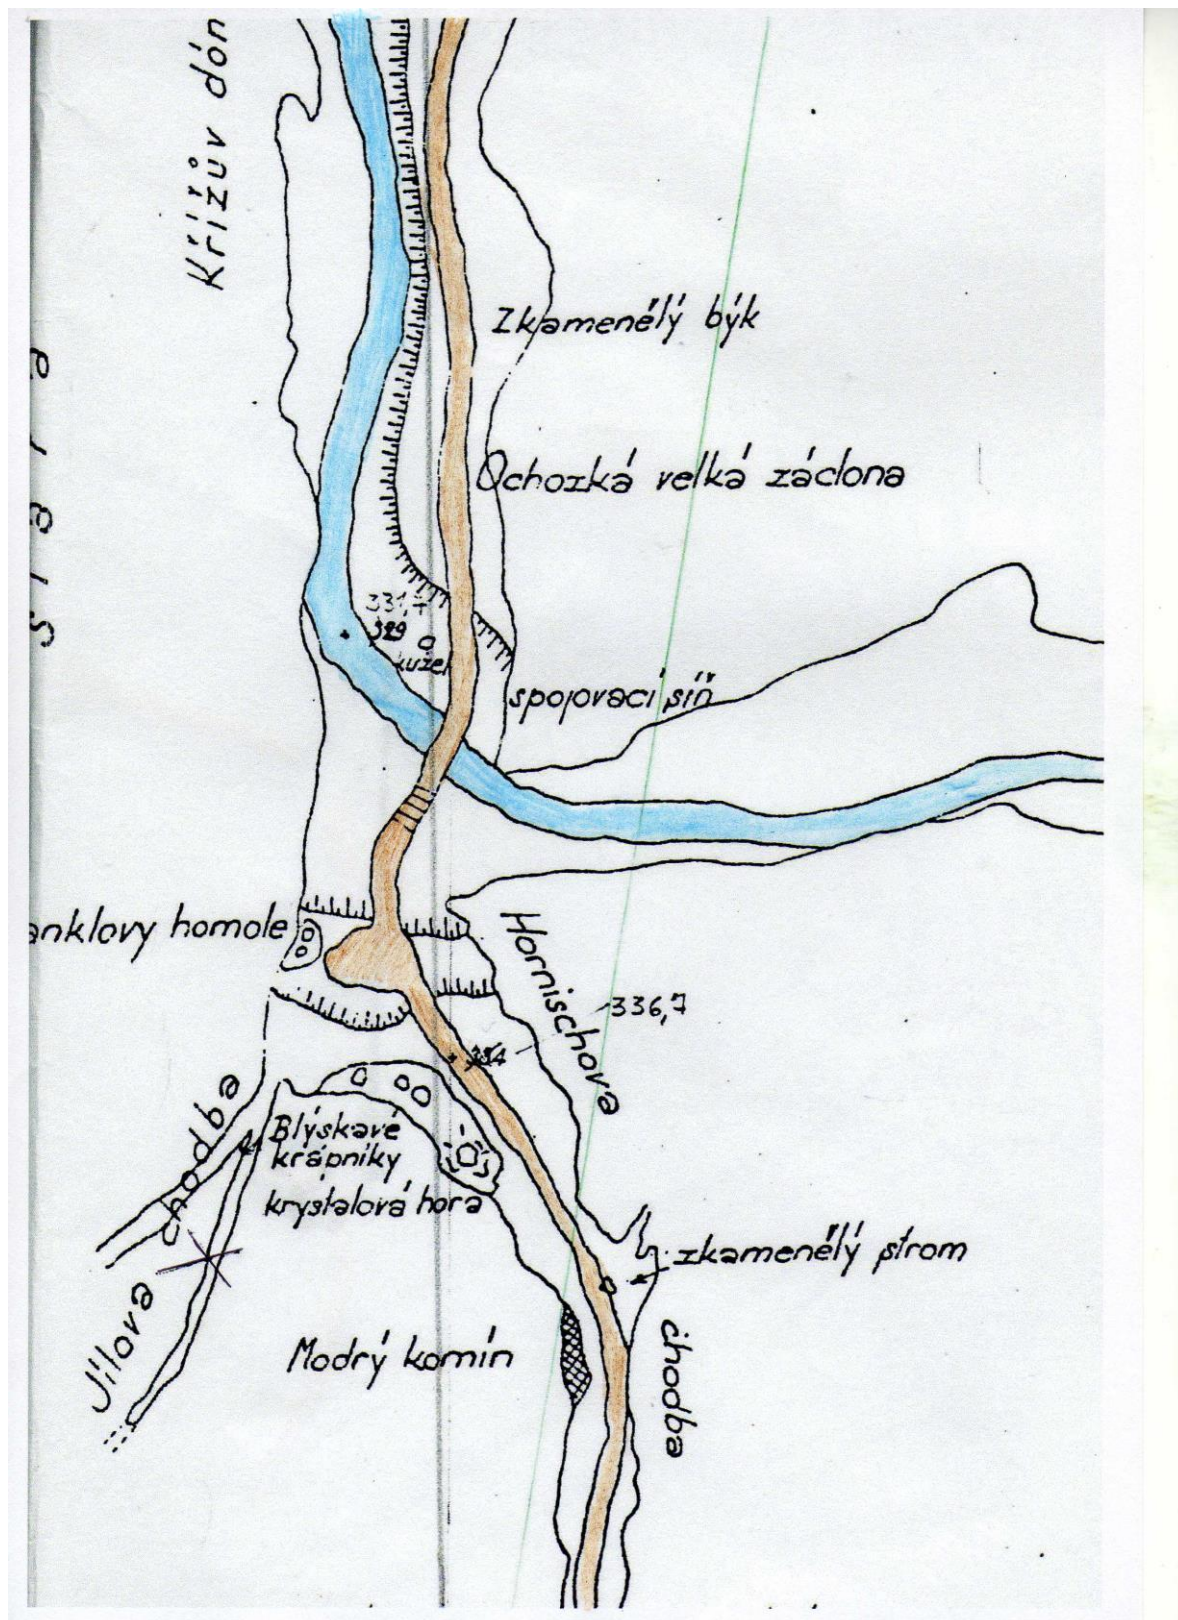 Křížův dóm
stará
Zkamenělý býk
Ochozká velká záclona
331,7
329
kužel
spojovací síň
anklovy homole
Hornischova
336,7
334
chodba
Blýskavé
krápníky
krystalová hora
zkamenělý strom
Jílova
Modrý komín
chodba